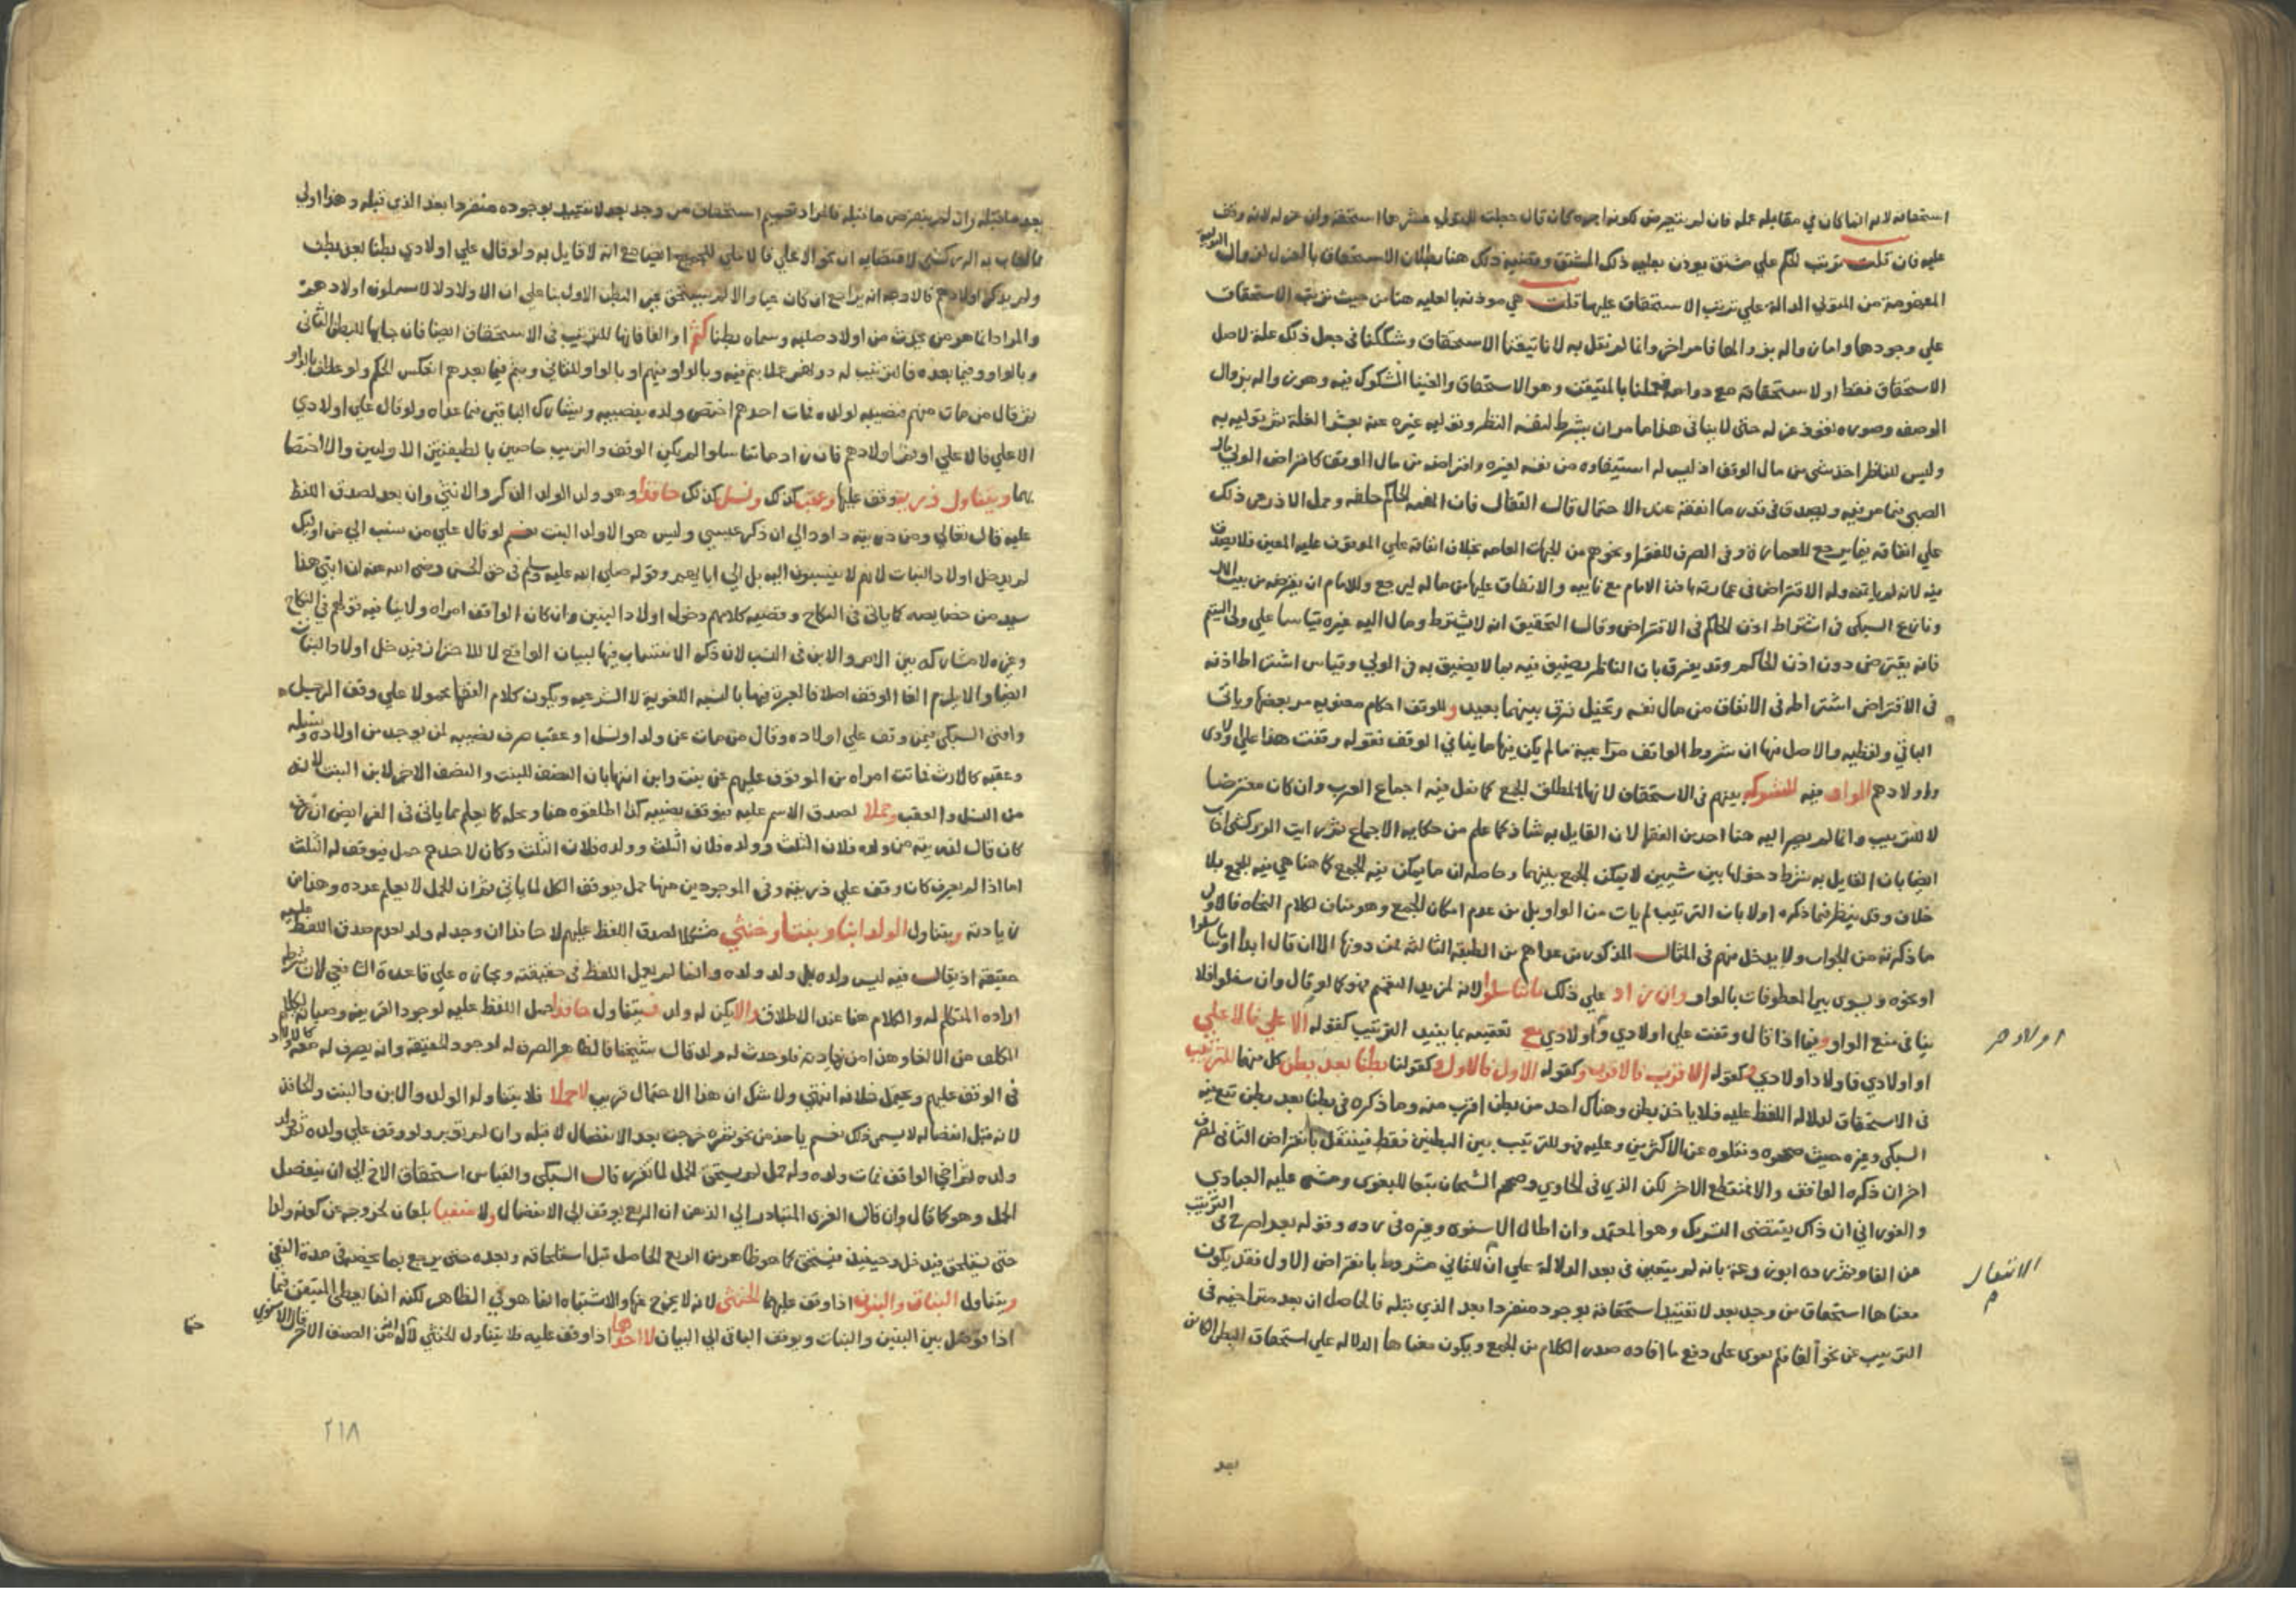 استحقاقه لانه انما كان في مقابلة عمله فان لم يتعرض لكونه اجرة كان قال جعلت للمتولي عشرها استحقه وان عزله لانه وقف
عليه فان قلت ترتيب الحكم علي مشتق يوذن بعليه ذلك المشتق وقضيه ذلك هنا بطلان الاستحقاق بالعزل لزوال التولية
المفهومة من المتولي الدالة علي ترتيب الاستحقاق عليها قلت هي موذنه بالعليه هنا من حيث ترتيب الاستحقاق
علي وجودها واما زواله بزوالها فامر اخر وانما لم نقل به لانا تيقنا الاستحقاق وشككنا في جعل ذلك علة لاصل
الاستحقاق فقط او لاستحقاقه مع دوامه فعملنا بالمتيقن وهو الاستحقاق والغينا المشكوك فيه وهو زواله بزوال
الوصف وصوره نفوذ عزله حتى لا ينافي هذا ما مر ان يشرط لنفسه النظر وتوليه غيره عنه بعشر الغلة ثم يوليه به
وليس للناظر اخذ شي من مال الوقف اذ ليس له استيفاوه من نفسه لغيره واقراضه من مال الوقف كاقراض الولي مال
الصبي فيما مر فيه ويصدق في قدر ما انفقه عند الاحتمال قال القفال فان اتهمه الحاكم حلفه وحمل الاذرعي ذلك
علي انفاقه فيما يرجع للعمارة وفي الصرف للفقرا ونحوهم من الجهات العامه بخلاف انفاقه علي الموقوف عليه المعين فلا يصدق
فيه لانه لم ياتمنه وله الاقتراض في عمارته باذن الامام مع نايبه والانفاق عليها من ماله ليرجع وللامام ان يقرضه من بيت المال
ونازع السبكي في اشتراط اذن الحاكم في الاقتراض وقال التحقيق انه لا يشترط ومال اليه غيره قياسا علي ولي اليتيم
فانه يقترض دون اذن الحاكم وقد يفرق بان الناظر يضيق فيه بما لا يضيق به في الولي وقياس اشتراط اذنه
في الاقتراض اشتراطه في الانفاق من مال نفسه وتخيل فرق بينهما بعيد وللوقف احكام معنويه مر بعضها وياتي
الباقي ولفظيه والاصل فيها ان شروط الواقف مراعية ما لم يكن فيها ما ينافي الوقف فقوله وقفت هذا علي اولادي
واولادهم الواو فيه للتشركه بينهم في الاستحقاق لانها لمطلق الجمع كما نقل فيه اجماع العرب وان كان معترضا
لا للترتيب وانما لم يصر اليه هنا احد من الفقها لان القايل به شاذ كما علم من حكايه الاجماع ثم رايت الزركشي اجاب
ايضا بان القايل به شرط دخولها بين شيين لا يمكن الجمع بينهما وحاصله ان ما يمكن فيه الجمع كما هنا هي فيه للجمع بلا
خلاف وقد ينظر فيما ذكره اولا بان الترتيب لم يات من الواو بل من عدم امكان الجمع وهو مناف لكلام النحاه فالاولي
ما ذكرته من الجواب ولا يدخل منهم في المثال المذكور من عداهم من الطبقه الثالثه فمن دونها الا ان قال ابدا او ما تناسلوا
او نحوه ويسوي بين المعطوفات بالواو وان زاد علي ذلك ما تناسلوا لانه لمزيد التعميم فهو كما لو قال وان سفلوا فلا
ينافي منع الواو وفيما اذا قال وقفت علي اولادي واولادي مع تعقيبه بما يفيد الترتيب كقوله الاعلي فالاعلي
اولادهم
او اولادي فاولاد اولادي وكقوله الاقرب فالاقرب وكقوله الاول فالاول وكقولنا بطنا بعد بطن كل منها للترتيب
في الاستحقاق لدلالة اللفظ عليه فلا ياخذ بطن وهناك احد من بطن اقرب منه وما ذكره في بطنا بعد بطن تبع فيه
السبكي وغيره حيث صححوه ونقلوه عن الاكثرين وعليه فهو للترتيب بين البطنين فقط فينتقل بانقراض الثاني لمصرف
اخر ان ذكره الواقف والا فمنقطع الاخر لكن الذي في الحاوي وصححه الشيخان تبعا للبغوي ومشي عليه العبادي
والفوراني ان ذلك يقتضي التشريك وهو المعتمد وان اطال الاسنوي وغيره في رده وقوله بعد اصرح في الترتيب
من الفا وثم رده ابو زرعة بانه لم يتعين في بعد الدلالة علي ان الثاني مشروط بانقراض الاول فقد يكون
الانتقال
معناها استحقاق من وجد بعد لا تقتيد استحقاقه بوجوده منفردا بعد الذي قبله فالحاصل ان بعد متراخيه في
الترتيب عن نحو الفا فلم تقوي علي دفع ما افاده صدر الكلام من الجمع ويكون معناها الدلاله علي استحقاق البطن الكائن
بعد
بعد ما قبله وان لم ينقرض ما قبله فالمراد تعميم استحقاق من وجد بعد لا تقييد بوجوده منفردا بعد الذي قبله وهذا اولي
مما اجاب به الزركشي لاقتضايه ان نحو الاعلي فالاعلي للجميع ايضا مع انه لا قايل به ولو قال علي اولادي بطنا بعد بطن
ولم يذكر اولادهم فالاوجه انه يراجع ان كان حيا والا لم يستحق غير البطن الاول بنا علي ان الاولاد لا يشملون اولادهم
والمراد انما هو من يحدث من اولاد صلبه وسماه بطنا كثم او الفا فانها للترتيب في الاستحقاق ايضا فان جابها للبطن الثاني
وبالواو فيما بعده فالترتيب له دونهم عملا بثم فيه وبالواو فيهم او بالواو للثاني وبثم فيما بعدهم انعكس الحكم ولو عطف بالواو
ثم قال من مات منهم فنصيبه لولده فمات احدهم اختص ولده بنصيبه ويشارك الباقين فيما عداه ولو قال علي اولادي
الاعلي فالاعلي او ثم اولادهم فان زاد ما تناسلوا لم يكن الوقف والترتيب خاصين بالطبقتين الاوليين والا اختصا
بهما ويتناول ذرية وقف عليها وعقب كذلك ونسل كذلك حافدا وهو ولد الولد الذكر والانثي وان بعد لصدق اللفظ
عليه قال تعالي ومن ذريته داود الي ان ذكر عيسي وليس هو الا ولد البنت نعم لو قال علي من ينسب الي من اوليك
لم يدخل اولاد البنات لانهم لا ينسبون اليه بل الي ابايهم وقوله صلي الله عليه وسلم في حق الحسن رضي الله عنه ان ابني هذا
سيد من خصايصه كما ياتي في النكاح وقضيه كلامهم دخول اولاد البنين وان كان الواقف امراه ولا ينافيه قولهم في النكاح
وغيره لا مشاركه بين الام والابن في النسب لان ذكر الانتساب فيها لبيان الواقع لا للاحتراز فيدخل اولاد البنات
ايضا والا يلزم الغا الوقف اصلا فالعبرة فيها بالنسبه اللغويه لا الشرعيه ويكون كلام الفقها محمولا علي وقف الرجل
وافتي السبكي فيمن وقف علي اولاده وقال من مات عن ولد او نسل او عقب صرف نصيبه لمن يوجد من اولاده ونسله
وعقبه كالارث فماتت امراه من الموقوف عليهم عن بنت وابن ابنها بان النصف للبنت والنصف الاخر لابن الابن لانه
من النسل والعقب وحملا لصدق الاسم عليه فيوقف نصيبه كذا اطلقوه هنا ومحله كما يعلم مما ياتي في الفرايض ان عرف
كان قال لذريته من ولده فلان الثلث وولده فلان الثلث وولده فلان الثلث وكان لاحدهم حمل فيوقف له الثلث
اما اذا لم يعرف كان وقف علي ذريته وفي الموجودين منها حمل فيوقف الكل لما ياتي ثم ان الحمل لا يعلم عدده وهذا من
زيادته ويتناول الولد ابنا وبنتا وخنثي مشكلا لصدق اللفظ عليهم لا حافدا ان وجد له ولد لعدم صدق اللفظ عليه
حقيقه اذ يقال فيه ليس ولده بل ولد ولده وانما لم يحمل اللفظ في حقيقته ومجازه علي قاعدة الشافعي لان شرطه
اراده المتكلم له والكلام هنا عند الاطلاق والا يكن له ولد فيتناول حافدا لحمل اللفظ عليه لوجود القرينه وصيانة لكلام
المكلف عن الالغا وهذا من زيادته فلو حدث له ولد قال شيخنا فالظاهر الصرف له لوجود الحقيقة وانه يصرف له معه كالاولاد
في الوقف عليهم ويحتمل خلافه انتهي ولا شك ان هذا الاحتمال قريب لا حملا فلا يتناوله الولد والابن والبنت والحافد
لانه قبل انفصاله لا يسمي ذلك نعم ياخذ من نحو ثمره خرجت بعد الانفصال لا قبله وان لم توبر ولو وقف علي ولده ثم ولد
ولده ثم اخي الواقف فمات ولده وله حمل لم يستحق الحمل لما تقرر قال السبكي والقياس استحقاق الاخ الي ان ينفصل
الحمل وهو كما قال وان قال الغزي المتبادر الي الذهن ان الريع يوقف الي الانفصال ولا منفيا بلعان لخروجه عن كونه ولدا
حتى يستلحق فيدخل وحينئذ فيستحق كما هو ظاهر من الريع الحاصل قبل استلحاقه وبعده حتى يرجع بما يخصه في مدة النفي
ويتناول البنات والبنون اذا وقف عليهما الخنثي لانه لا يخرج عنهما والاشتباه انما هو في الظاهر لكنه انما يعطي المتيقن فيما
اذا فوضل بين البنين والبنات ويوقف الباقي الي البيان لا احدهما اذا وقف عليه فلا يتناول الخنثي لاحتمال انه من الصنف الاخر قال الاسنوي
٢١٨